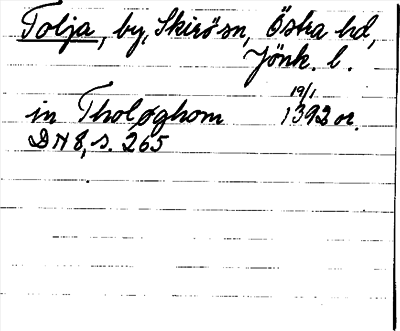 Tolja, by, Skirö sn, Östra hd,
Jönk. l.
19/1
in Tholøghom 1392 or.
DN 8, s. 265